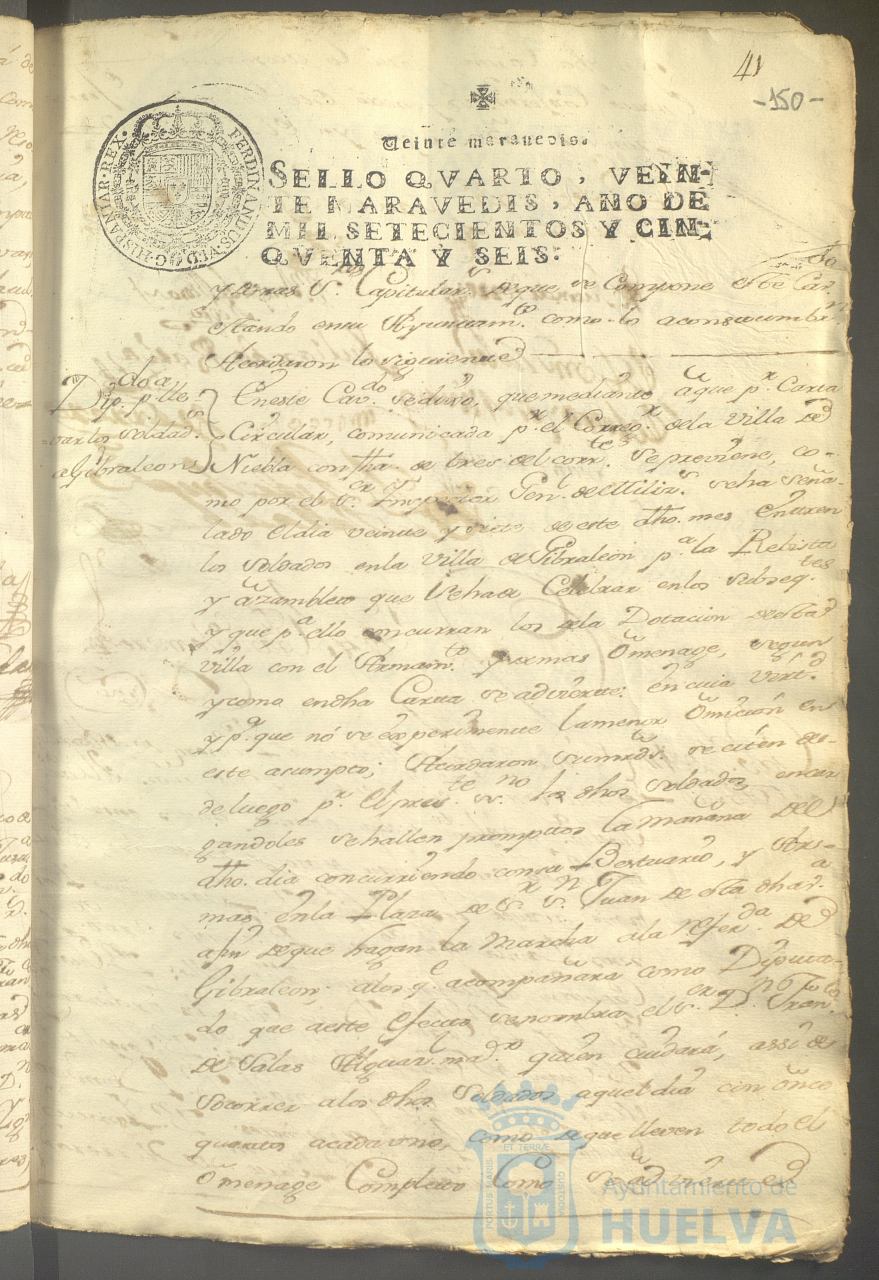 41
-150-
FERDINANDUS·VI·D·G·HISPANIAR·REX·
Veinte maravedis.
SELLO QVARTO, VEYN-
TE MARAVEDIS, AÑO DE
MIL SETECIENTOS Y CIN-
QVENTA Y SEIS.
y demas S.res Capitular.s de que se Compone este Cav.do
estando en su Ayuntam.to como lo acostumbr.n
Acordaron lo siguiente
Dip.do p.a lle-
var los soldad.s
a Gibraleon
En este Cav.do se dixo, que mediante a que p.r Carta
Circular, comunicada p.r el Correg.r de la Villa de
Niebla con fha. de tres del corr.te se previene, co-
mo por el S.r Inspector Gen.l de Milix.s se ha seña-
lado el dia veinte y siete de este dho. mes entren
los soldados en la Villa de Gibraleon p.a la Rebista
y asamblea que se ha de Celebrar en los subseq.tes
y que p.a ello concurran los de la Dotacion de esta
Villa con el Armam.to y demas omenage, segun
y como en dha Carta se advierte: en cuia virt.d
y p.a que no se experimente la menor omicion en
este asumpto; Acordaron sus mrds. se citen des-
de luego p.r el pres.te ss.no los dhos soldados, encar
gandoles se hallen promptos la mañana del
dho. dia concurriendo con su Bestuario, y Ar-
mas en la Plaza de S.r S.n Juan de esta dha v.a
a fin de que hagan la marcha a la refer.da de
Gibraleon; a los q.e acompañara como Diputa-
do que a este efecto se nombra el S.r D.n Fran.co
de Salas Alguar. ma.or quien cuidará, assi de
socorrer a los dhos soldados aquel dia con onse
quartos a cada uno, como de que lleven todo el
omenage Completo Como se advierte
Ayuntamiento de
HUELVA
PORTUS MARIS
ET TERRÆ
CUSTODIA